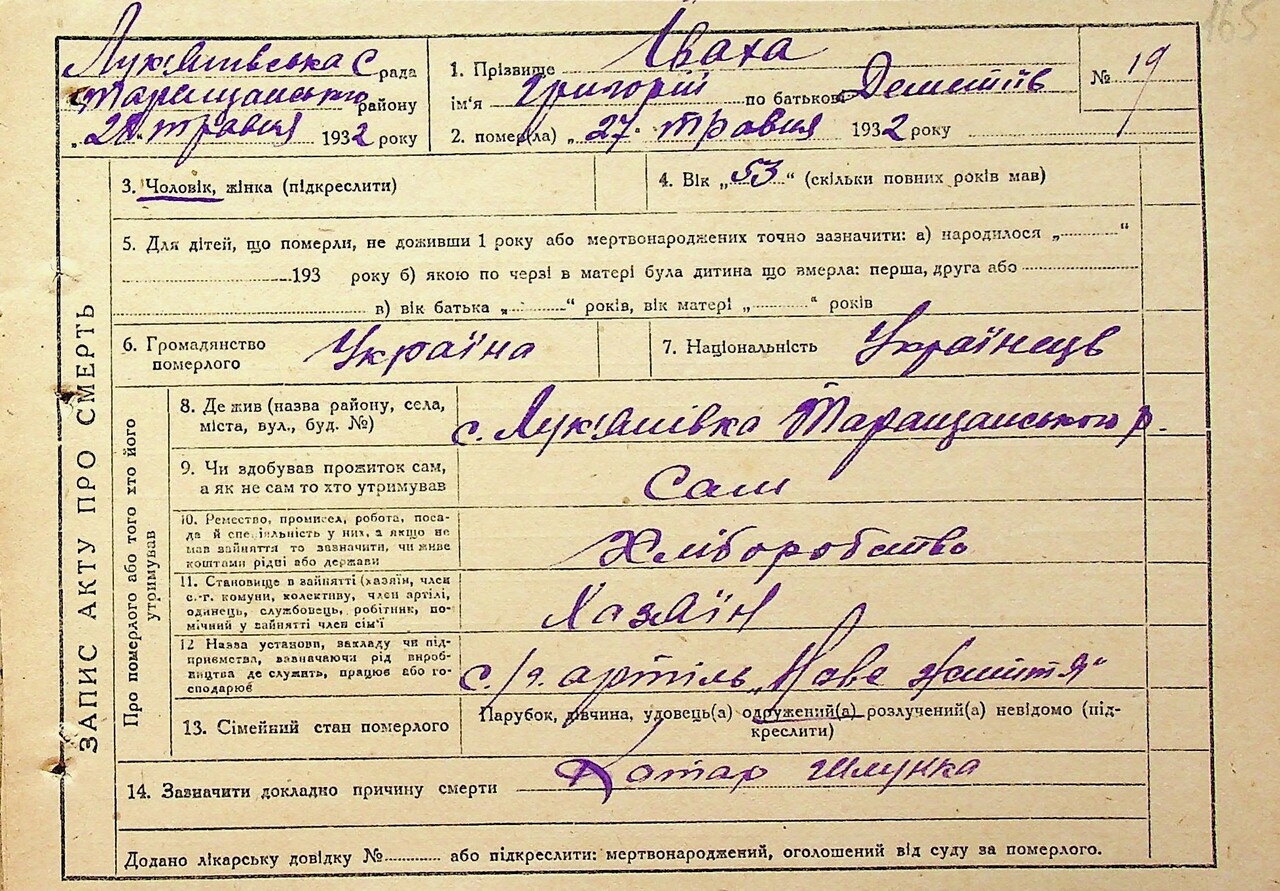 165
Лук'янівська с рада
Таращанського району
„28" травня 1932 року
1. Прізвище Іваха
ім'я Григорій по батькові Дементіїв
2. помер(ла) „27" травня 1932 року
№ 19
ЗАПИС АКТУ ПРО СМЕРТЬ
3. Чоловік, жінка (підкреслити)
4. Вік „53" (скільки повних років мав)
5. Для дітей, що померли, не доживши 1 року або мертвонароджених точно зазначити: а) народилося „ "
193 року б) якою по черзі в матері була дитина що вмерла: перша, друга або
в) вік батька „ " років, вік матері „ " років
6. Громадянство
померлого
Україна
7. Національність Українець
Про померлого або того хто його
утримував
8. Де жив (назва району, села,
міста, вул., буд. №)
с. Лук'янівка Таращанського р.
9. Чи здобував прожиток сам,
а як не сам то хто утримував
Сам
10. Ремество, промисел, робота, поса-
да й спеціяльність у них, а якщо не
мав зайняття то зазначити, чи живе
коштами рідні або держави
Хліборобство
11. Становище в зайнятті (хазяїн, член
с.-г. комуни, колективу, член артілі,
одинець, службовець, робітник, по-
мічний у зайнятті член сім'ї
Хазяїн
12 Назва установи, закладу чи під-
приємства, вазначаючи рід вироб-
ництва де служить, працює або го-
сподарює
с./г. артіль „Нове життя"
13. Сімейний стан померлого
Парубок, дівчина, удовець(а) одружений(а) розлучений(а) невідомо (під-
креслити)
14. Зазначити докладно причину смерти Катар шлунка
Додано лікарську довідку № або підкреслити: мертвонароджений, оголошений від суду за померлого.